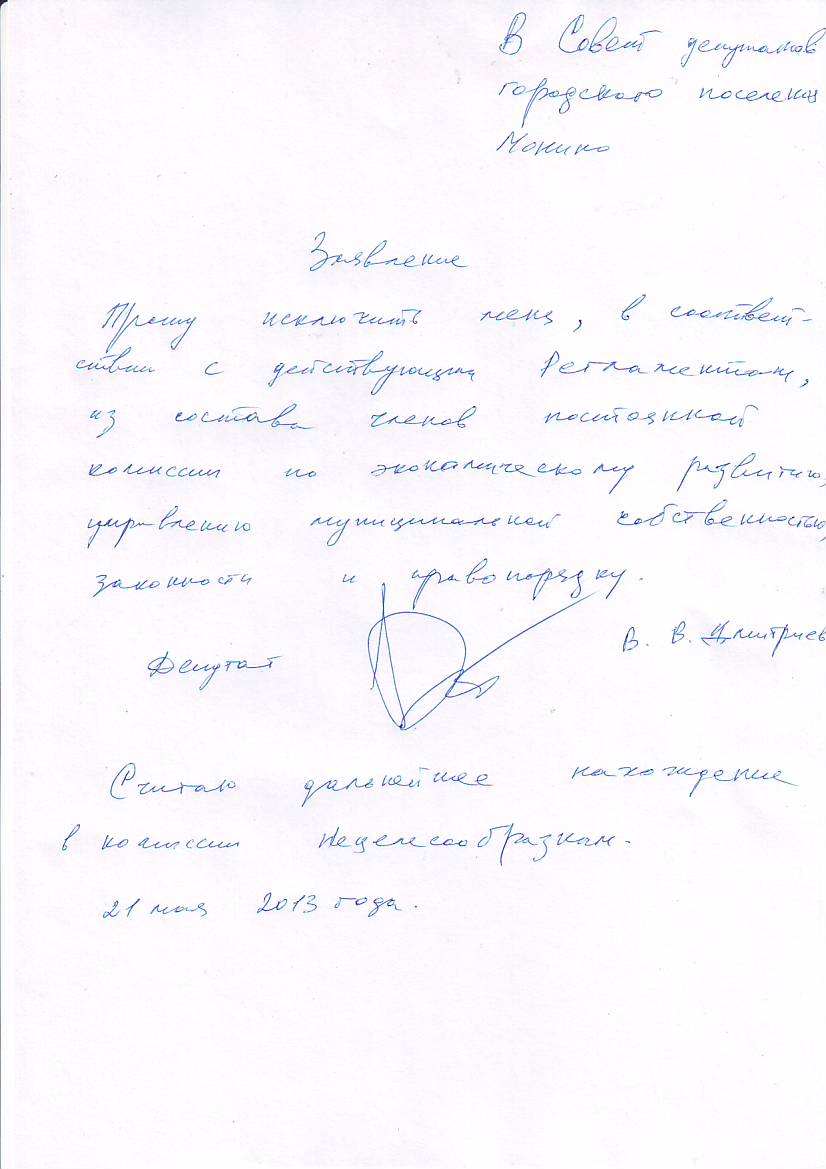 В Совет депутатов
городского поселения
Монино
Заявление
Прошу исключить меня, в соответ-
ствии с действующим Регламентом,
из состава членов постоянной
комиссии по экономическому развитию,
управлению муниципальной собственностью,
законности и правопорядку.
В. В. Дмитриев
Депутат
Считаю дальнейшее нахождение
в комиссии нецелесообразным.
21 мая 2013 года.